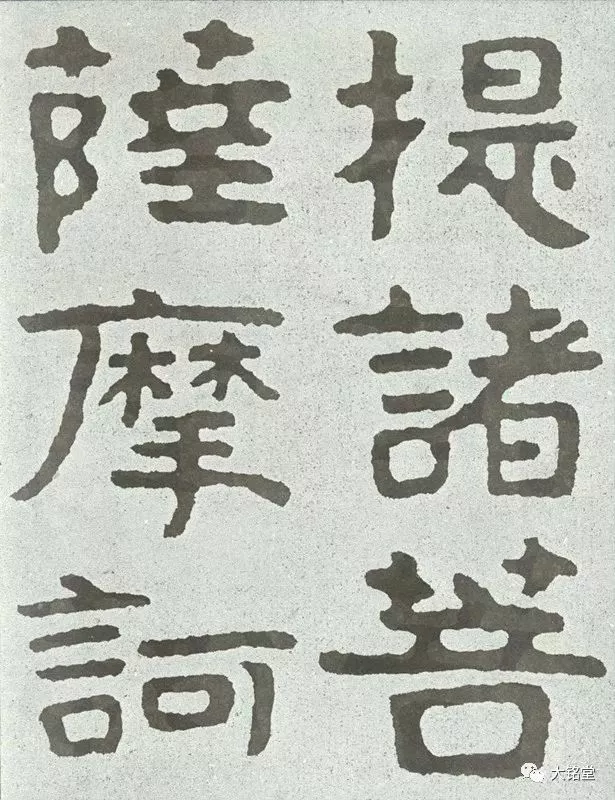 提諸菩
薩摩訶
大铭堂